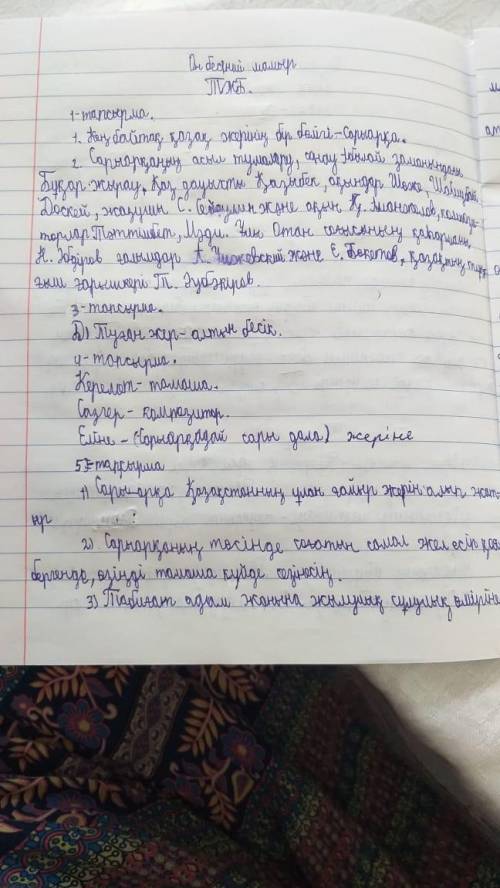 Он бесінші мамыр
ТЖБ.
1-тапсырма.
1. Кең байтақ қазақ жерінің бір бөлігі-Сарыарқа.
2. Сарыарқаның асыл тумалары, Абылай заманындағы
Бұқар жырау, Қаз дауысты Қазыбек, ақындар Шөже,
Доскей, жазушы С. Сейфуллин және ақын Қ. Аманжолов, компози-
торлар Тәттімбет, Мәди. Ұлы Отан соғысының қаһарманы
Н. Әбдіров ғалымдар және Е. Бөкетов, қазақтың тұң-
ғыш ғарышкері Т. Әубәкіров.
3-тапсырма.
Д) Туған жер-алтын бесік.
4-тапсырма.
Керемет-тамаша.
Сазгер-композитор.
Еліне-(Сарыарқадай сары дала) жеріне
5-тапсырма
1) Сарыарқа Қазақстанның ұлан ғайыр жерін алып жат-
ыр
2) Сарыарқаның төсінде соғатын самал жел есіп қоя
бергенде, өзіңді тамаша күйде сезінесің.
3) Табиғат адам жанына жылулық сұлулық өміріне